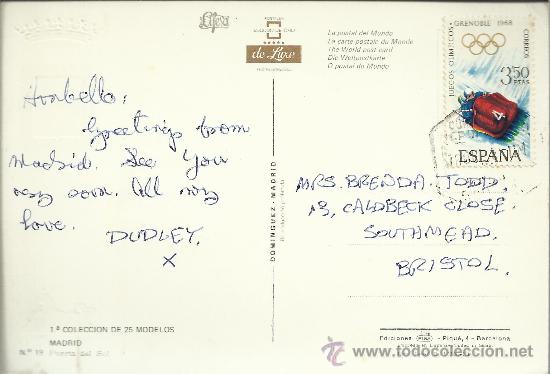 Lifesa
POSTALES
de Luxe
La postal del Mundo
La carte postale du Monde
The World post card
Die Weltpostkarte
O postal do Mundo
GRENOBLE 1968
JUEGOS OLIMPICOS
CORREOS
3,50
PTAS
4
ESPAÑA
Greetings from
Madrid. See you
very soon. All my
love.
DUDLEY.
X
MRS. BRENDA. TODD,
13, CALDBECK CLOSE.
SOUTHMEAD.
BRISTOL.
DOMINGUEZ - MADRID
1.ª COLECCION DE 25 MODELOS
MADRID
N.º 19 Puerta del Sol
Ediciones - Piqué, 4 - Barcelona
todocoleccion.net